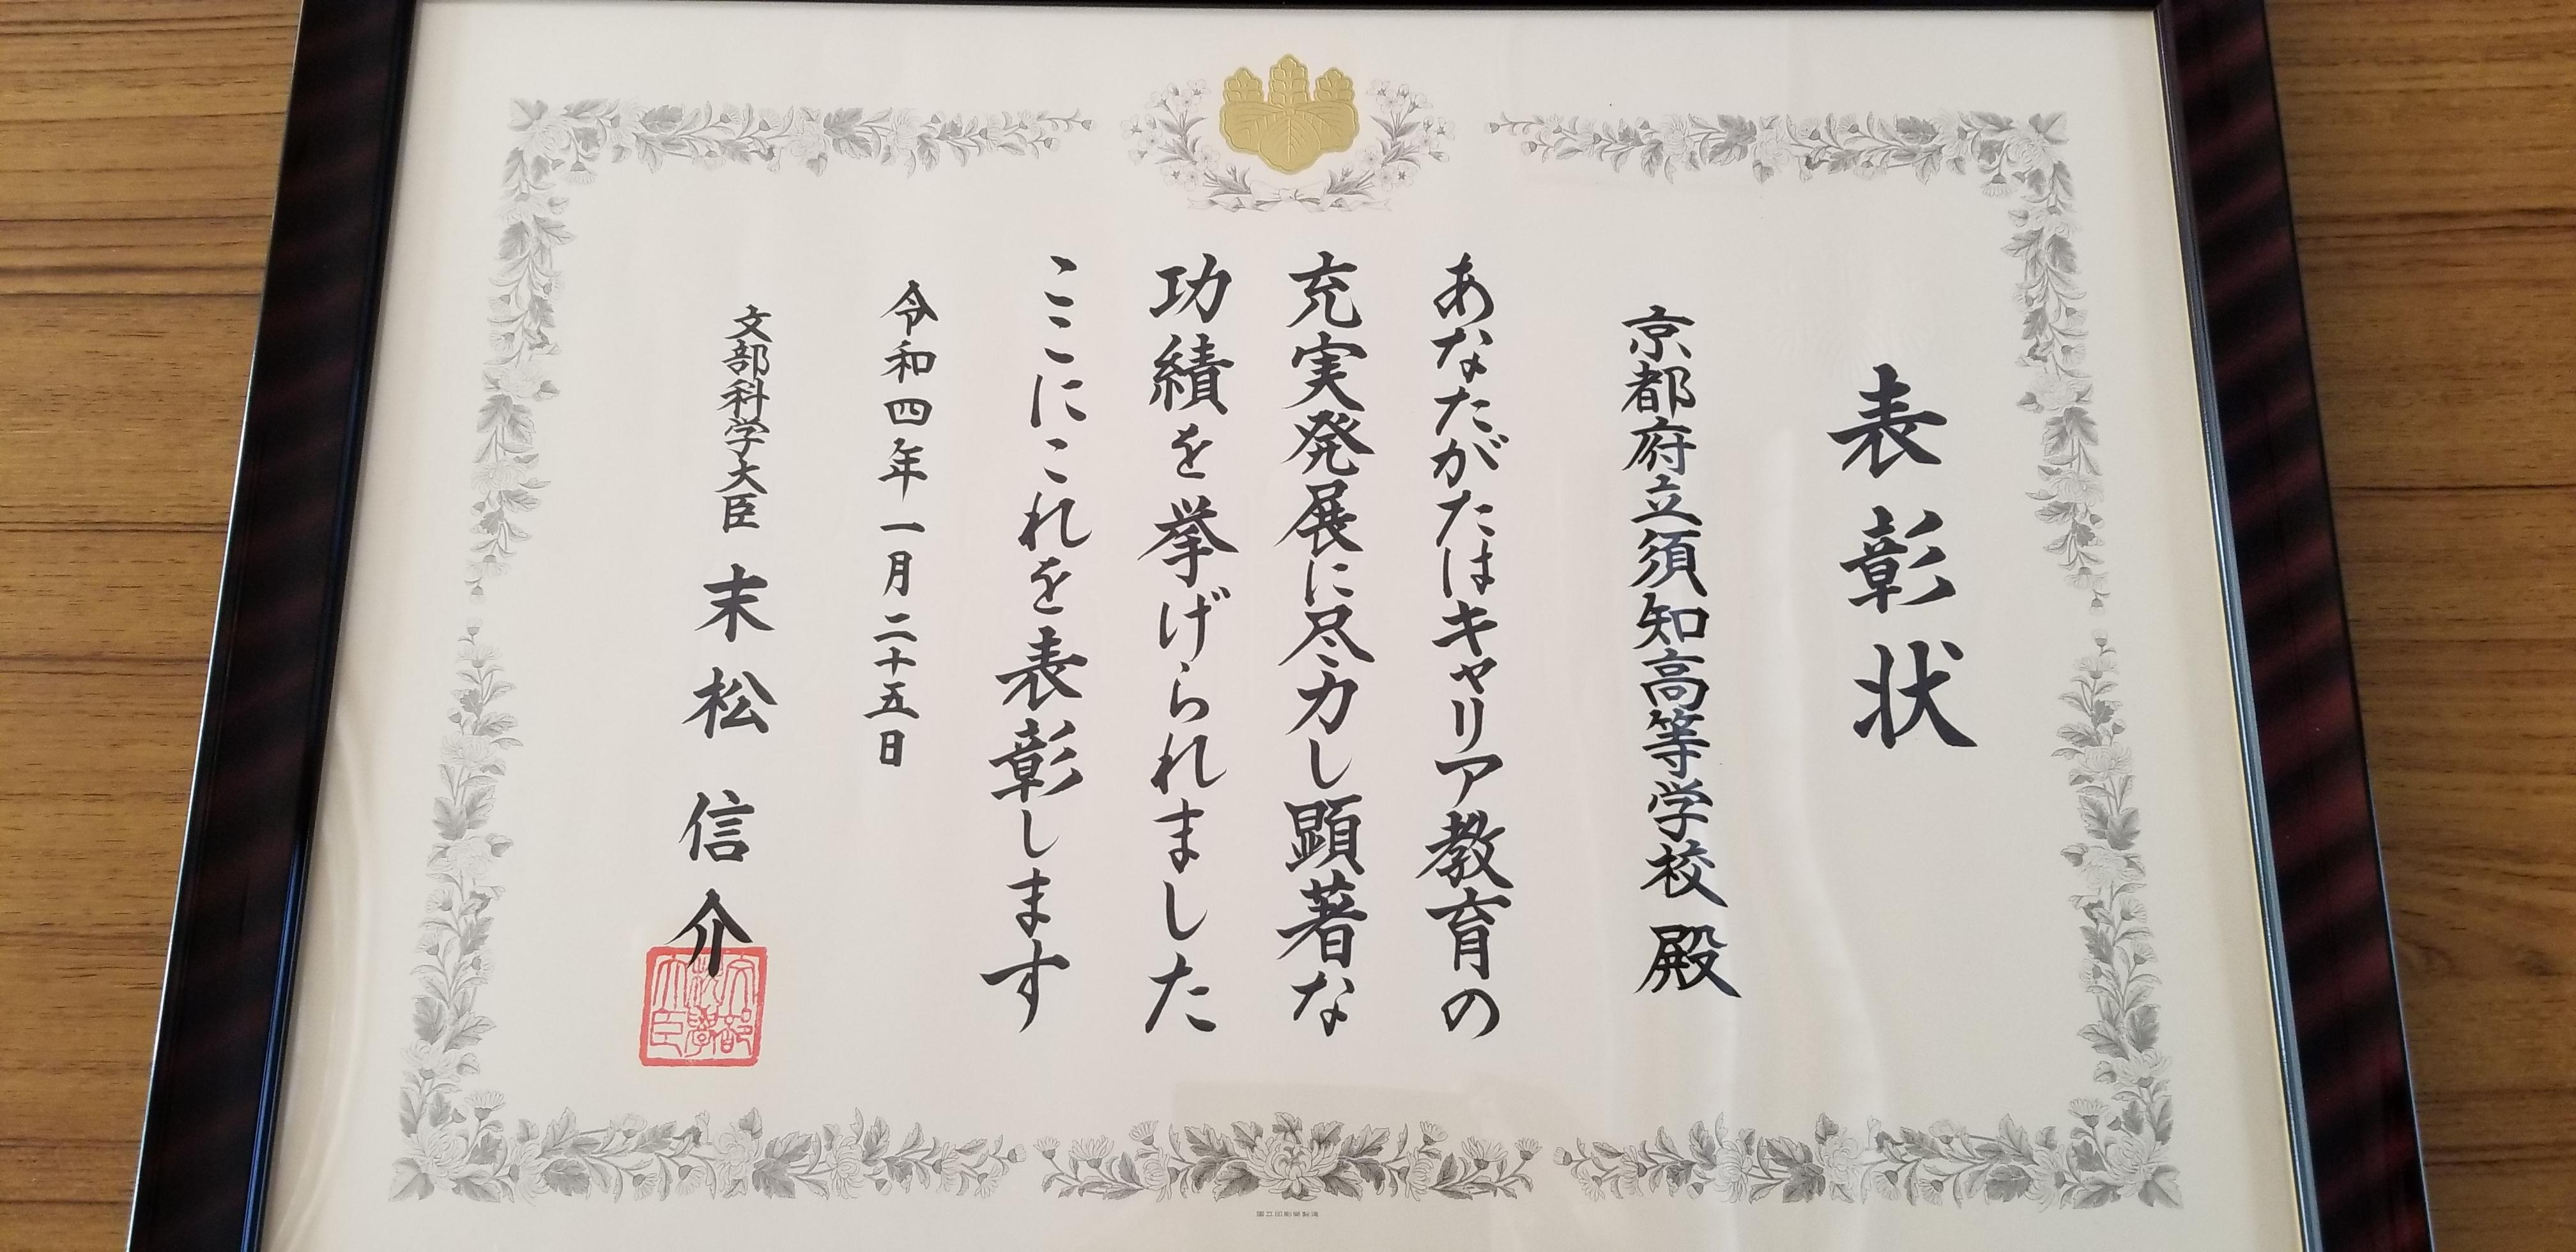 表彰状
京都府立須知高等学校 殿
あなたがたはキャリア教育の
充実発展に尽力し顕著な
功績を挙げられました
ここにこれを表彰します
令和四年一月二十五日
文部科学大臣 末松信介
文部
科学
大臣
国立印刷局製造